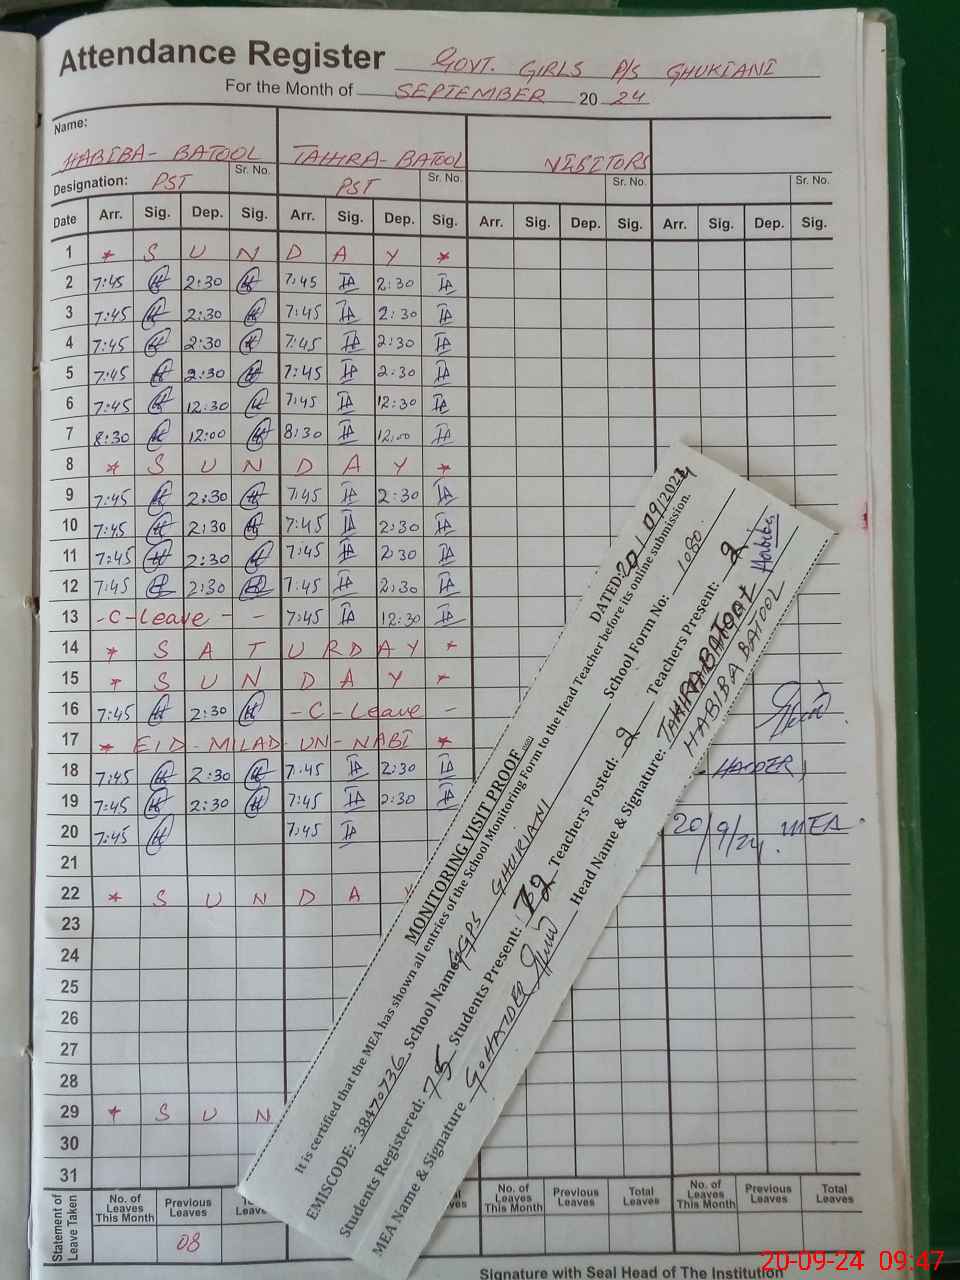 Attendance Register GOVT. GIRLS P/S GHUKIANI
For the Month of SEPTEMBER 20 24
Name:
HABIBA- BATOOL TAHIRA- BATOOL VISITORS
Designation: PST Sr. No. PST Sr. No. Sr. No. Sr. No.
Date Arr. Sig. Dep. Sig. Arr. Sig. Dep. Sig. Arr. Sig. Dep. Sig. Arr. Sig. Dep. Sig.
1 * S U N D A Y *
2 7:45 2:30 7:45 2:30
3 7:45 2:30 7:45 2:30
4 7:45 2:30 7:45 2:30
5 7:45 2:30 7:45 2:30
6 7:45 12:30 7:45 12:30
7 8:30 12:00 8:30 12:00
8 * S U N D A Y *
9 7:45 2:30 7:45 2:30
10 7:45 2:30 7:45 2:30
11 7:45 2:30 7:45 2:30
12 7:45 2:30 7:45 2:30
13 -C-Leave - - 7:45 12:30
14 * S A T U R D A Y *
15 * S U N D A Y *
16 7:45 2:30 -C-Leave -
17 * EID-MILAD-UN-NABI *
18 7:45 2:30 7:45 2:30
19 7:45 2:30 7:45 2:30
20 7:45 7:45
21
22 * S U N D A Y
23
24
25
26
27
28
29 * S U N
30
31
Statement of Leave Taken
No. of Leaves This Month Previous Leaves No. of Leaves This Month Previous Leaves Total Leaves No. of Leaves This Month Previous Leaves Total Leaves
08
Signature with Seal Head of The Institution
HAIDER
20/9/24 MEA
MONITORING VISIT PROOF DATED: 20/09/2024
It is certified that the MEA has shown all entries of the School Monitoring Form to the Head Teacher before its online submission.
EMISCODE: 38470736 School Name: GGPS GHUKIANI School Form No: 1080
Students Registered: 75 Students Present: 72 Teachers Posted: 2 Teachers Present: 2
MEA Name & Signature G. HAIDER Head Name & Signature: TAHIRA BATOOL
HABIBA BATOOL Habiba
20-09-24 09:47